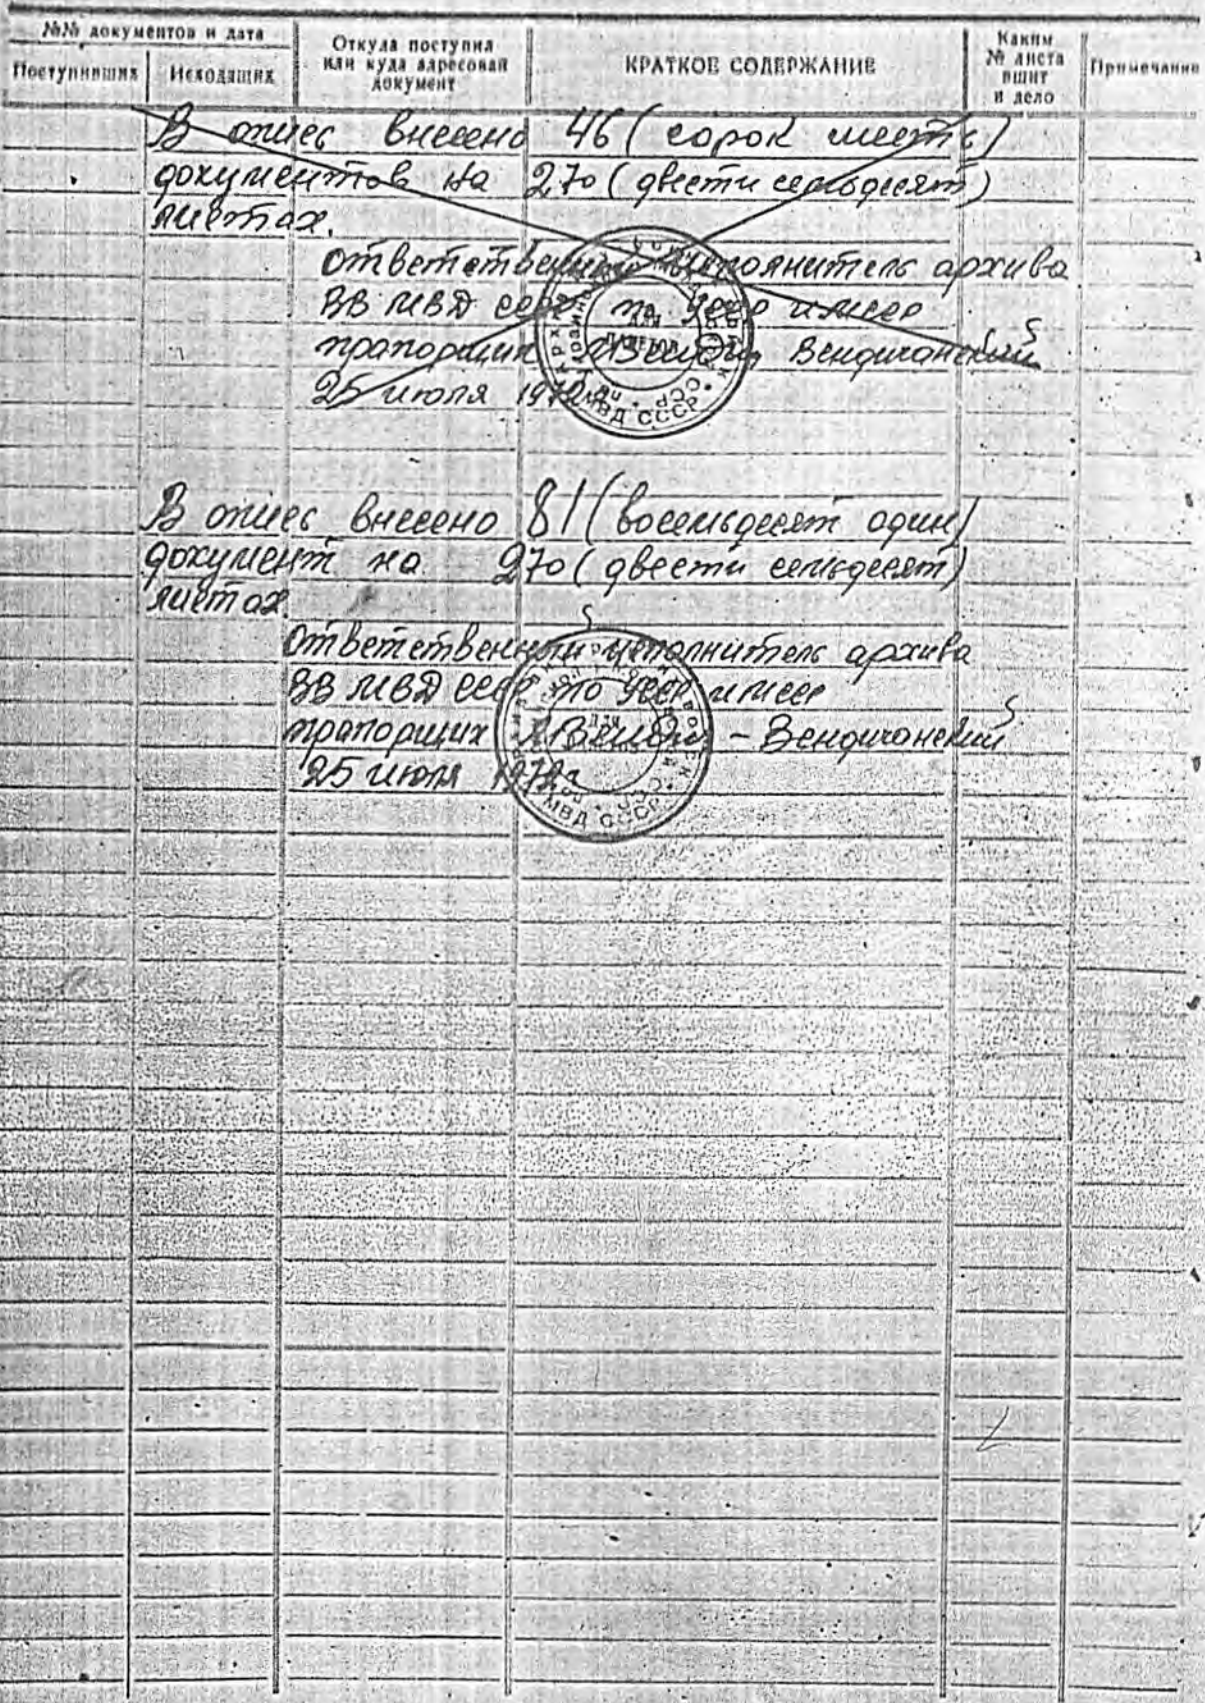 №№ документов и дата
Поступивших
Исходящих
Откуда поступил
или куда адресован
документ
КРАТКОЕ СОДЕРЖАНИЕ
Каким
№ листа
пшит
в дело
Примечание
В опись внесено 46 (сорок шесть)
документов на 270 (двести семьдесят)
листах.
Ответственный исполнитель архива
ВВ МВД СССР по УССР и МССР
прапорщик Вендичанский
25 июля 1972
МВД СССР
В опись внесено 81 (восемьдесят один)
документ на 270 (двести семьдесят)
листах
Ответственный исполнитель архива
ВВ МВД СССР по УССР и МССР
прапорщик - Вендичанский
25 июля 1972г
для
МВД СССР